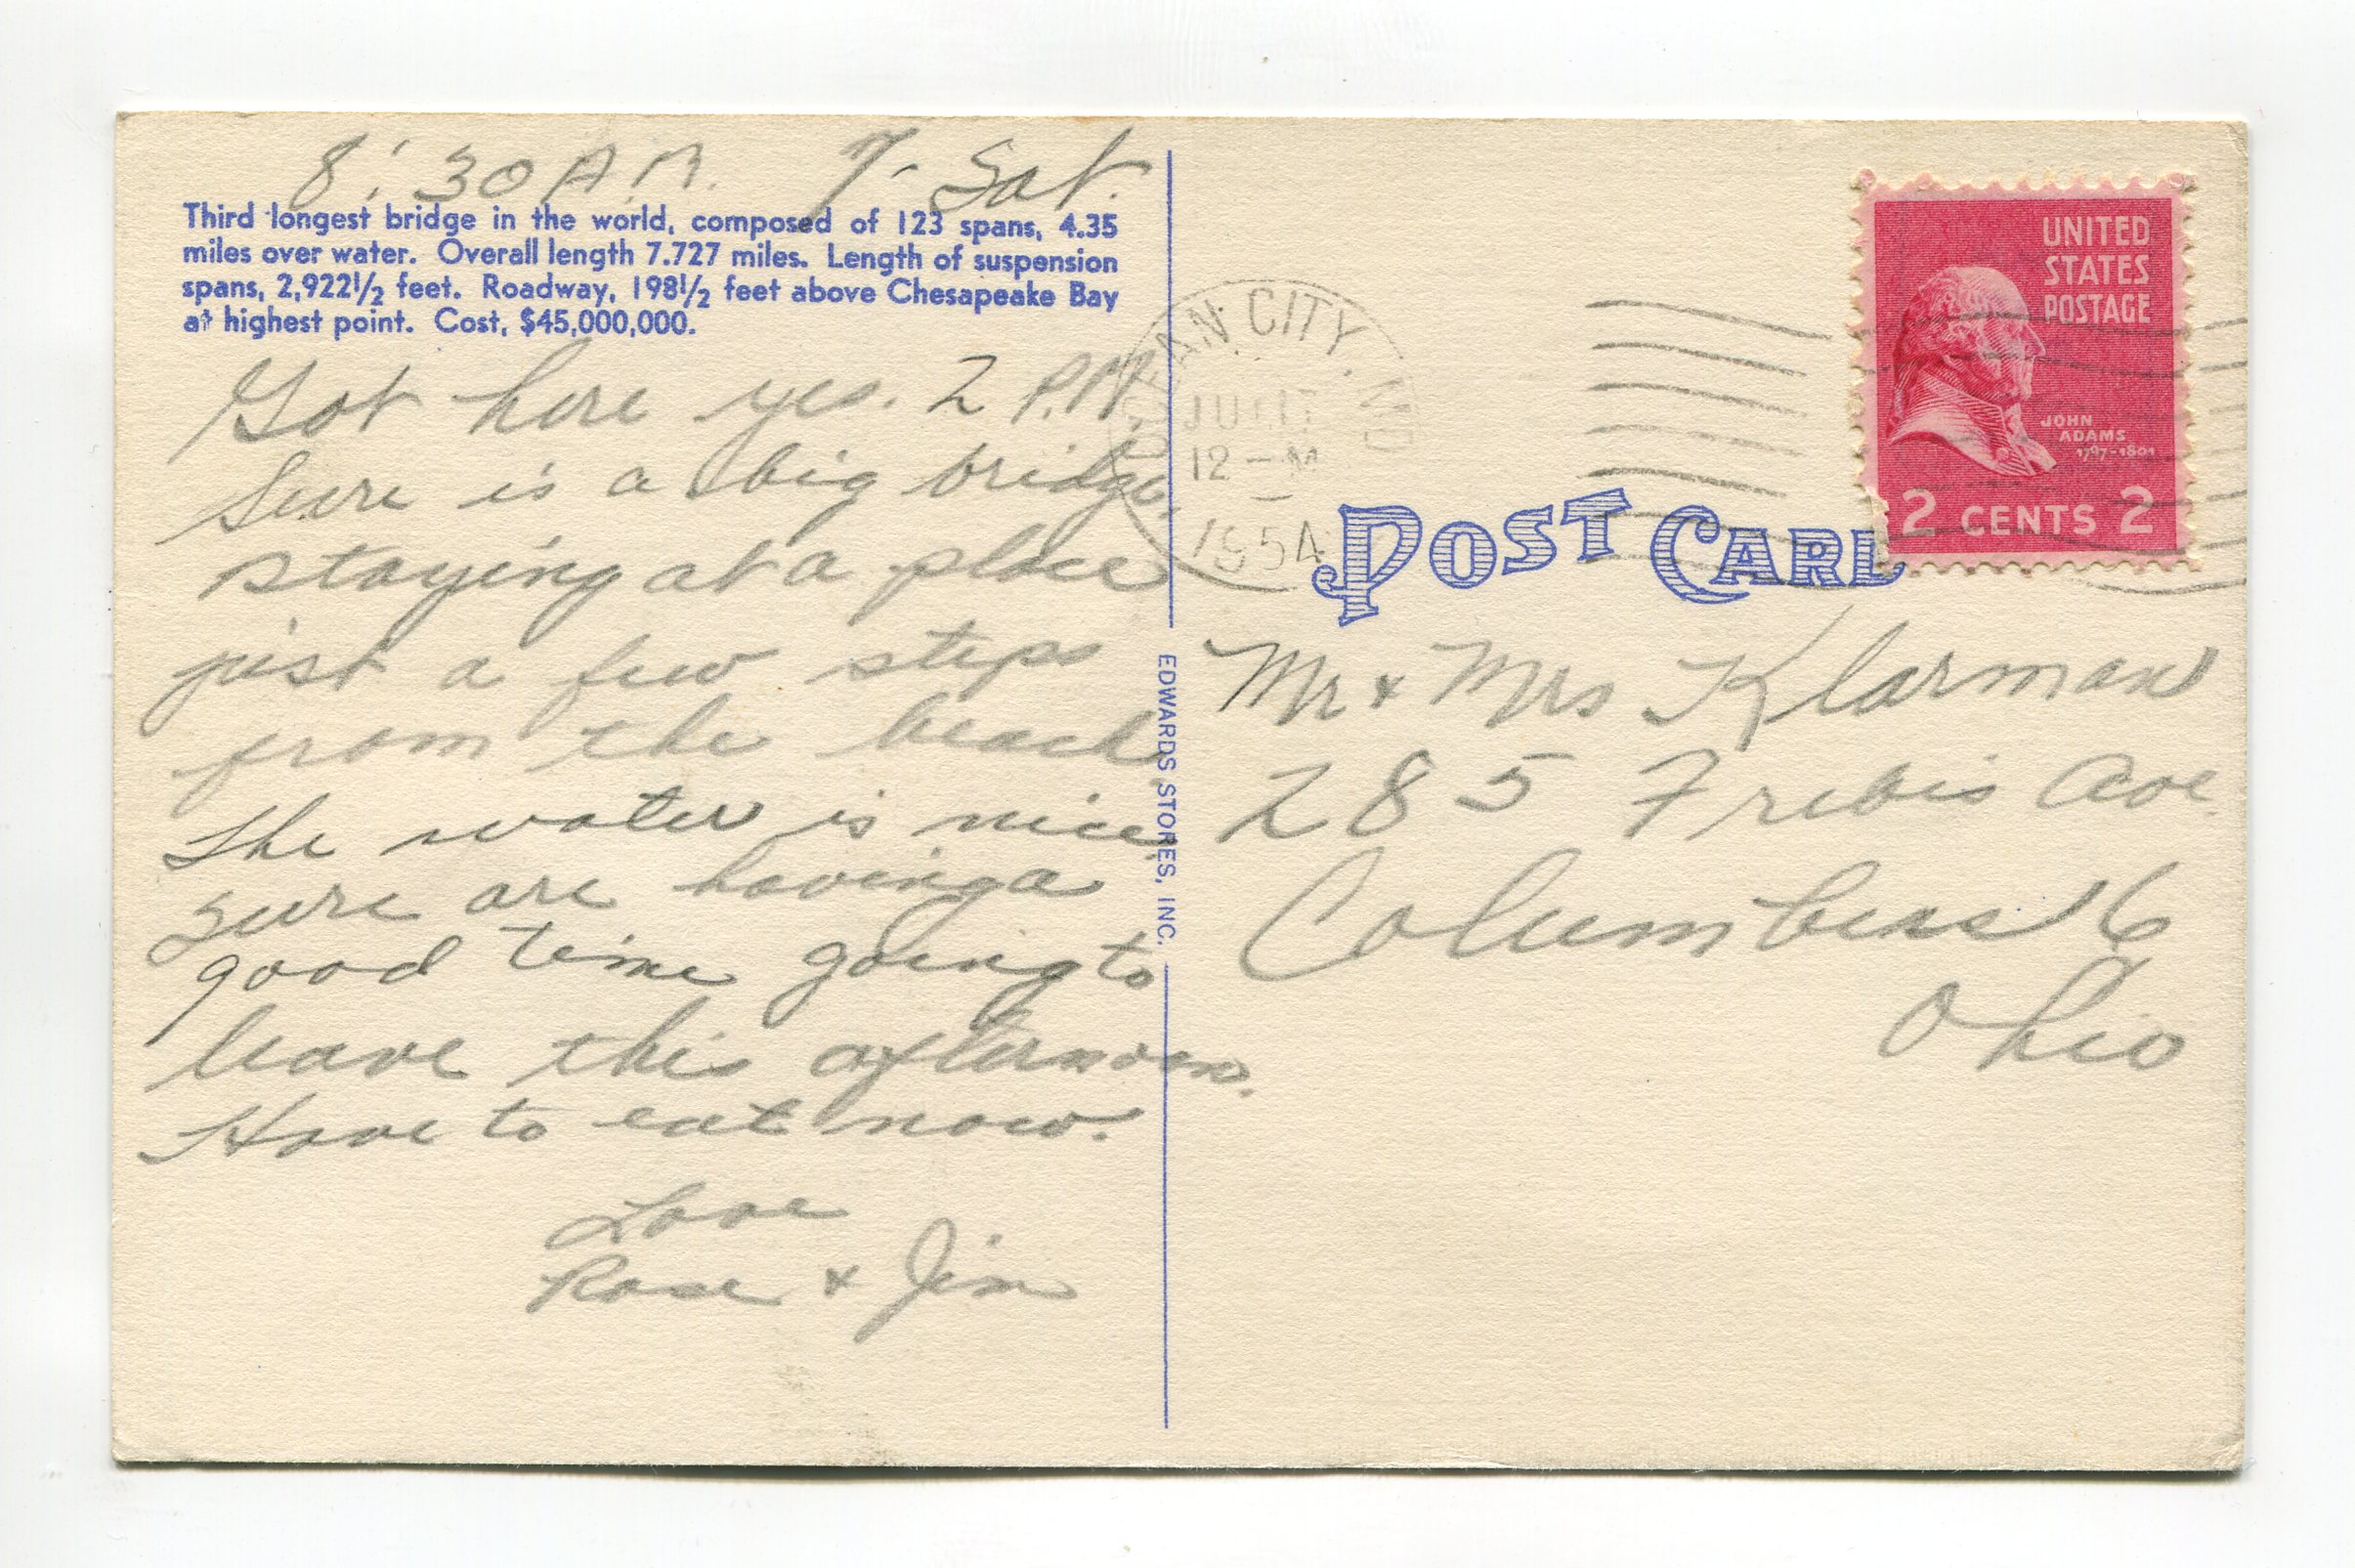 8:30 A.M. 7- Sat.
Third longest bridge in the world, composed of 123 spans, 4.35
miles over water. Overall length 7.727 miles. Length of suspension
spans, 2,922½ feet. Roadway, 198½ feet above Chesapeake Bay
at highest point. Cost, $45,000,000.
Got here yes. 2 P.M.
Sure is a big bridge.
staying at a place
just a few steps
from the beach
The water is nice
sure are having a
good time going to
leave this afternoon.
Have to eat now.
Love
Rose & Jim
EDWARDS STORES, INC.
OCEAN CITY, MD
12 - M
1954
POST CARD
UNITED
STATES
POSTAGE
JOHN
ADAMS
1797-1801
2 CENTS 2
Mr & Mrs Klarman
285 Frebis Ave
Columbus 16
Ohio